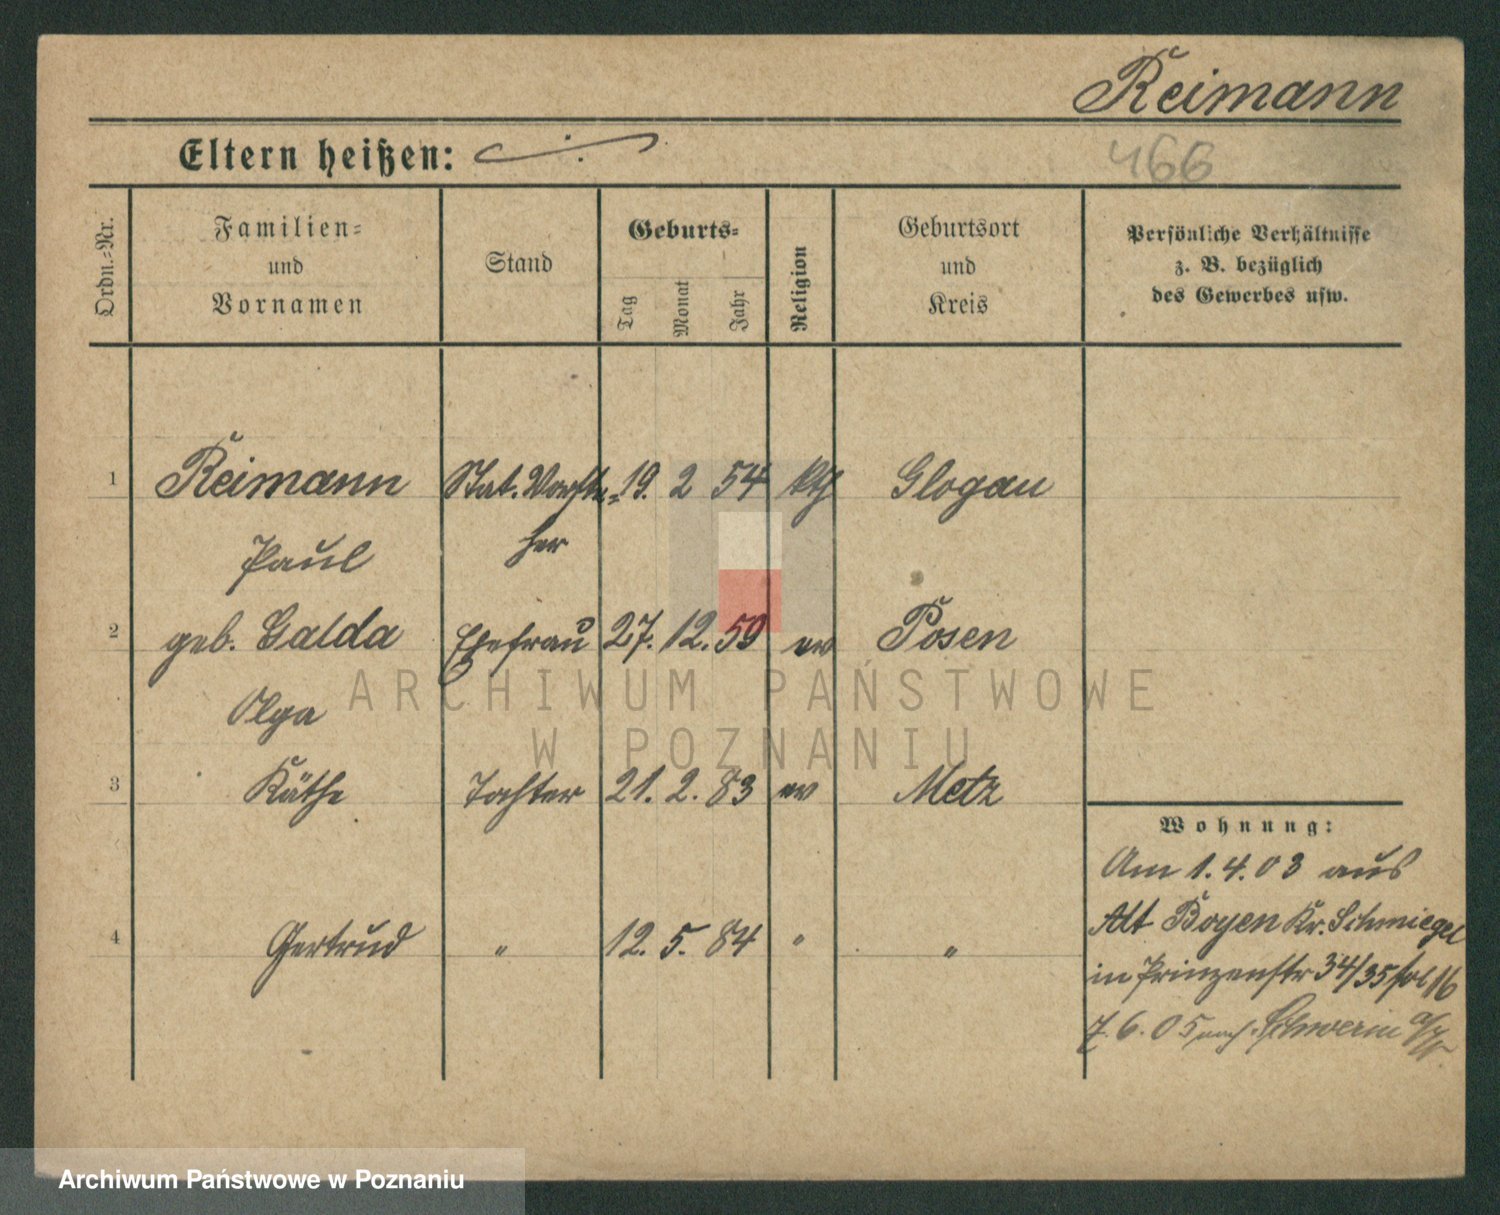 Reimann
Eltern heißen:
466
Ordn.=Nr.
Familien=
und
Vornamen
Stand
Geburts=
Tag
Monat
Jahr
Religion
Geburtsort
und
Kreis
Persönliche Verhältnisse
z. B. bezüglich
des Gewerbes usw.
1 Reimann Stat. Vorste= 19. 2 54 kth Glogau
Paul her
2 geb. Galda Ehefrau 27. 12. 59 ev Posen
Olga
3 Käthe Tochter 21. 2. 83 ev Metz
4 Gertrud " 12. 5. 84 " "
Wohnung:
Am 1. 4. 03 aus
Alt Boyen Kr. Schmiegel
in Prinzenstr 34/35 pol 16
7. 6. 05 nach Schwerin a/W
ARCHIWUM PAŃSTWOWE
W POZNANIU
Archiwum Państwowe w Poznaniu